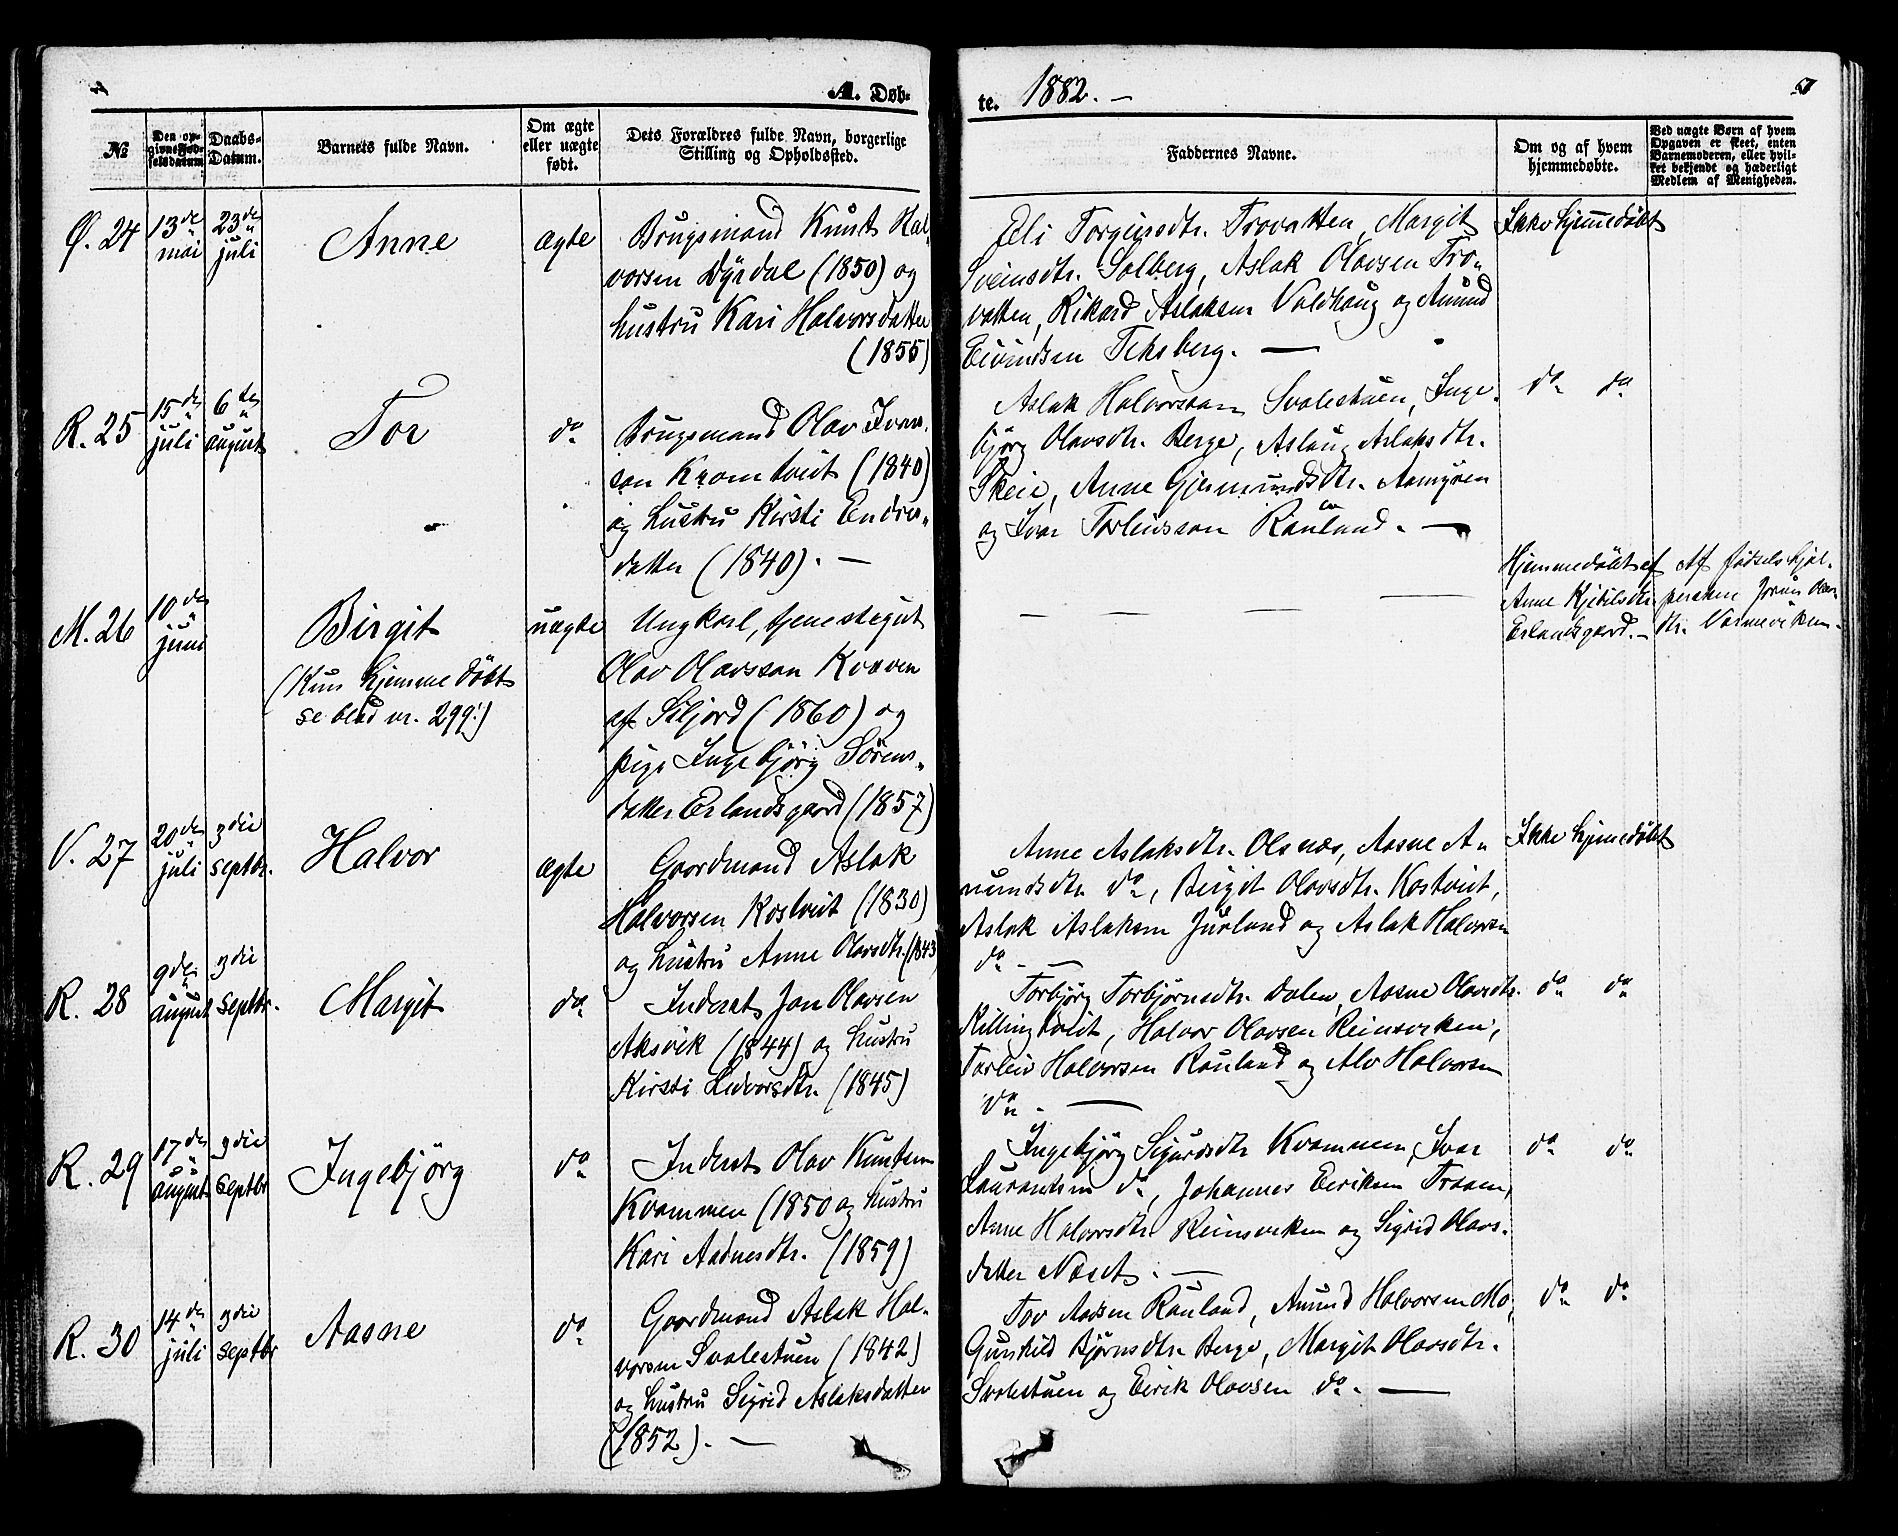 A. Døb-
te. 1882. —
№
Den op-
givne Fød-
selsdatum
Daabs-
Datum.
Barnets fulde Navn.
Om ægte
eller uægte
født.
Dets Forældres fulde Navn, borgerlige
Stilling og Opholdssted.
Faddernes Navne.
Om og af hvem
hjemmedøbte.
Ved uægte Børn af hvem
Opgaven er skeet, enten
Barnemoderen, eller hvil-
ket bekjendt og hæderligt
Medlem af Menigheden.
Ø. 24
13de
mai
23de
juli
Anne
ægte
Brugsmand Knut Hal-
vorsen Dyrdal (1850) og
hustru Kari Halvorsdatter
(1855)
Torgeirsdtr. Trovatten, Margit
Sveinsdtr. Solberg, Aslak Olavsen Tro-
vatten, Rikard Aslaksen Valdhaug og Amund
Eivindsen Teksberg. —
Ikke hjemmedøbt
R. 25
15de
juli
6te
august
Tor
do
Brugsmand Olav Ivars-
son Kromtveit (1840)
og hustru Kirsti Endres-
datter (1840). —
Aslak Halvorsson Svalestuen, Inge-
bjørg Olavsdtr. Berge, Aslaug Aslaksdtr.
Skeie, Anne Gjermundsdtr.
og Ivar Torleivsson Rauland. —
do do
M. 26
10de
juni
Birgit
(Kun hjemmedøbt
se blad nr. 299!)
uægte
Ungkarl, tjenestegut
Olav Olavsson Kvaven
af Siljord (1860) og
pige Ingebjörg Sörens-
datter Erlandsgaard (1857)
— — — — —
Hjemmedøbt af
Anne Kjetilsdtr.
Erlandsgaard. —
Af fødselshjæl-
persken Jorun Olavs-
dtr. Varmeviken. —
V. 27
20de
juli
3die
septbr.
Halvor
ægte
Gaardmand Aslak
Halvorsen Kostveit (1830)
og hustru Anne Olavsdtr. (1843)
Anne Aslaksdtr. Olsnæs, Aasne A-
mundsdtr. do, Birgit Olavsdtr. Kostveit,
Aslak Aslaksen Juvland og Aslak Halvorsen
do —
Ikke hjemmedøbt
R. 28
9de
august
3die
septbr.
Margit
do
Inderst Jon Olavsen
Aksvik (1844) og hustru
Kirsti Ledvorsdtr. (1845)
Torbjørg Torbjørnsdtr. Dalen, Aasne Olavsdtr.
Killingtveit, Halvor Olavsen Reinsviken,
Torleiv Halvorsen Rauland og Alv Halvorsen
do. —
do do
R. 29
17de
august
3die
septbr
Ingebjörg
do
Inderst Olav Knutsen
Kvammen (1850 og hustru
Kari Aadnesdtr. (1859)
Ingebjørg Sigurdsdtr Kvammen, Ivar
Laurantsen do, Johannes Eiriksen Traaen,
Anne Halvorsdtr. Reinsviken og Sigrid Olavs-
datter Næset. —
do do
R. 30
14de
juli
3die
septbr
Aasne
do
Gaardmand Aslak Hal-
vorsen Svalestuen (1842)
og hustru Sigrid Aslaksdatter
(1852). —
Tov Aadsen Rauland, Amund Halvorsen Mo,
Gunhild Bjørnsdtr. Berge, Margit Olavsdtr.
Svalestuen og Eirik Olavsen do. —
do do